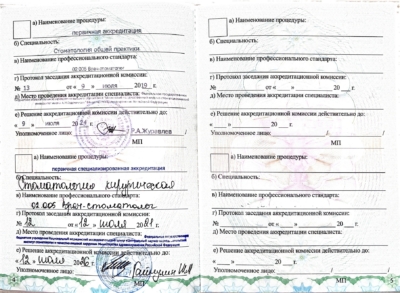 а) Наименование процедуры:
первичная аккредитация
б) Специальность:
Стоматология общей практики
в) Наименование профессионального стандарта:
г) Протокол заседания аккредитационной комиссии:
№ 13 от « 9 » июля 2019 г.
д) Место проведения аккредитации специалиста:
е) Решение аккредитационной комиссии действительно до:
« 9 » июля 2024 г.
Уполномоченное лицо: Р.А. Жиавлев
МП
а) Наименование процедуры:
первичная специализированная аккредитация
б) Специальность:
Стоматология хирургическая
в) Наименование профессионального стандарта:
02.005 врач-стоматолог
г) Протокол заседания аккредитационной комиссии:
№ 12 от « 12 » июля 2021
д) Место проведения аккредитации специалиста:
е) Решение аккредитационной комиссии действительно до:
« 12 » июля 2026 г.
Уполномоченное лицо:
МП
4
а) Наименование процедуры:
б) Специальность:
в) Наименование профессионального стандарта:
г) Протокол заседания аккредитационной комиссии:
№ от « » 20 г.
д) Место проведения аккредитации специалиста:
е) Решение аккредитационной комиссии действительно до:
« » 20 г.
Уполномоченное лицо:
МП
а) Наименование процедуры:
б) Специальность:
в) Наименование профессионального стандарта:
г) Протокол заседания аккредитационной комиссии:
№ от « » 20 г.
д) Место проведения аккредитации специалиста:
е) Решение аккредитационной комиссии действительно до:
« » 20 г.
Уполномоченное лицо:
МП
5